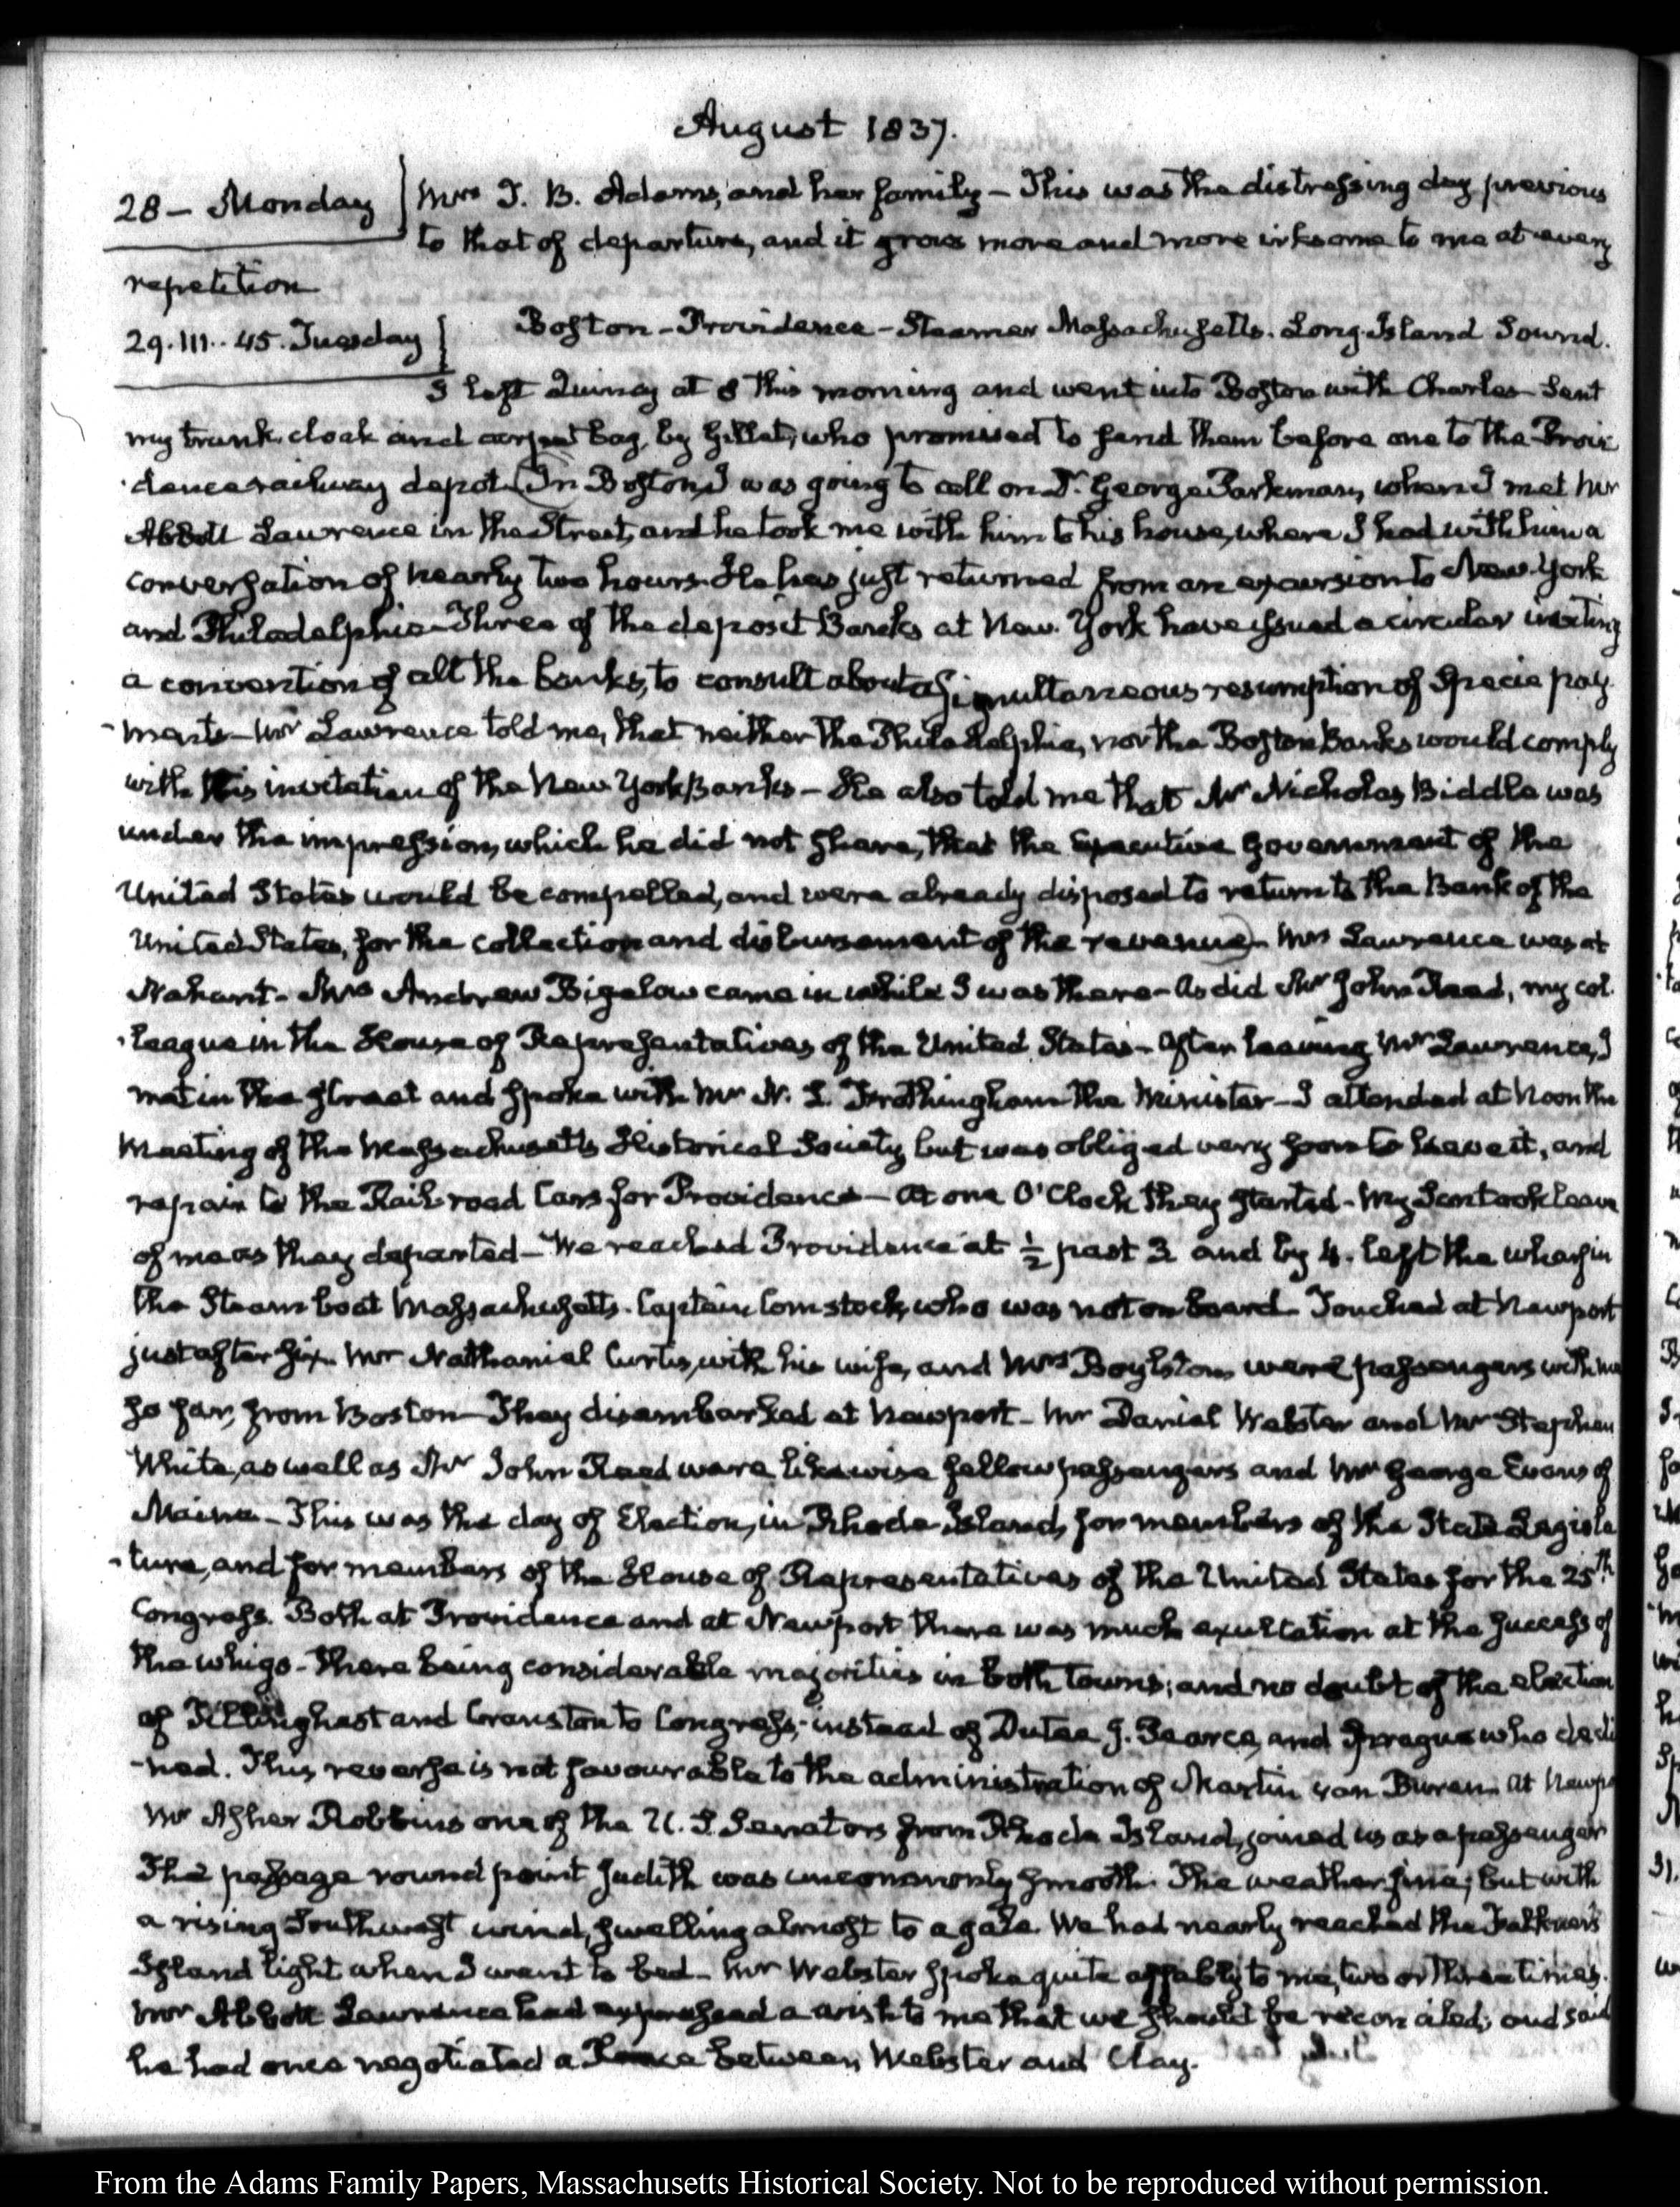 August 1837.
28 — Monday
Mrs T. B. Adams, and her family — This was the distressing day previous
to that of departure, and it grows more and more irksome to me at every
repetition
29. III.. 45. Tuesday
Boston — Providence — Steamer Massachusetts. Long-Island Sound.
I left Quincy at 8 this morning and went into Boston with Charles — Sent
my trunk, cloak and carpet bag, by Gillet, who promised to send them before one to the Provi
-dence railway depot. In Boston, I was going to call on Dr. George Parkman, when I met Mr
Abbott Lawrence in the Street, and he took me with him to his house, where I had with him a
conversation of nearly two hours. He has just returned from an excursion to New York
and Philadelphia — Three of the deposit Banks at New-York have issued a circular inviting
a convention of all the banks, to consult about a simultaneous resumption of Specie pay
-ments — Mr Lawrence told me, that neither the Philadelphia, nor the Boston Banks would comply
with this invitation of the New York Banks — He also told me that Mr Nicholas Biddle was
under the impression, which he did not share, that the Executive Government of the
United States would be compelled, and were already disposed to return to the Bank of the
United States, for the collection and disbursement of the revenue — Mrs Lawrence was at
Nahant — Mrs Andrew Bigelow came in while I was there — As did Mr John Reed, my col
-league in the House of Representatives of the United States — After leaving Mr Lawrence, I
met in the street and spoke with Mr N. L. Frothingham the Minister — I attended at Noon the
Meeting of the Massachusetts Historical Society but was obliged very soon to leave it, and
repair to the Rail-road Cars for Providence — At one O'Clock they started — My Son took leave
of me as they departed — We reached Providence at ½ past 3 and by 4. left the wharf in
the Steam boat Massachusetts. Captain Comstock, who was not on board. Touched at Newport
just after six. Mr Nathaniel Curtis, with his wife, and Mrs Boylston were passengers with me
so far, from Boston — They disembarked at Newport — Mr Daniel Webster and Mr Stephen
White, as well as Mr John Reed were likewise fellow passengers and Mr George Evans of
Maine — This was the day of Election, in Rhode Island, for members of the State Legisla
-ture, and for members of the House of Representatives of the United States for the 25th
Congress. Both at Providence and at Newport there was much exultation at the success of
the whigs — there being considerable majorities in both towns; and no doubt of the election
of Tillinghast and Cranston to Congress; instead of Dutee J. Pearce, and Sprague who decli
-ned. This reverse is not favourable to the administration of Martin van Buren. At Newpo
Mr Asher Robbins one of the U. S. Senators from Rhode Island, joined us as a passenger
The passage round point Judith was uncommonly smooth. The weather fine; but with
a rising Southwest wind, swelling almost to a gale. We had nearly reached the Falkner's
Island light when I went to bed — Mr Webster spoke quite affably to me, two or three times.
Mr Abbott Lawrence had expressed a wish to me that we should be reconciled; and said
he had once negotiated a Peace between Webster and Clay.
From the Adams Family Papers, Massachusetts Historical Society. Not to be reproduced without permission.